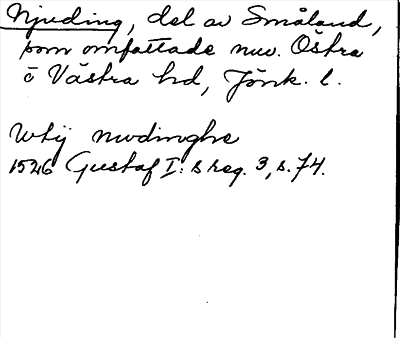 Njuding, del av Småland,
som omfattade nuv. Östra
o Västra hd, Jönk. l.
Utij nwdinghe
1526 Gustaf I:s reg. 3, s. 74.